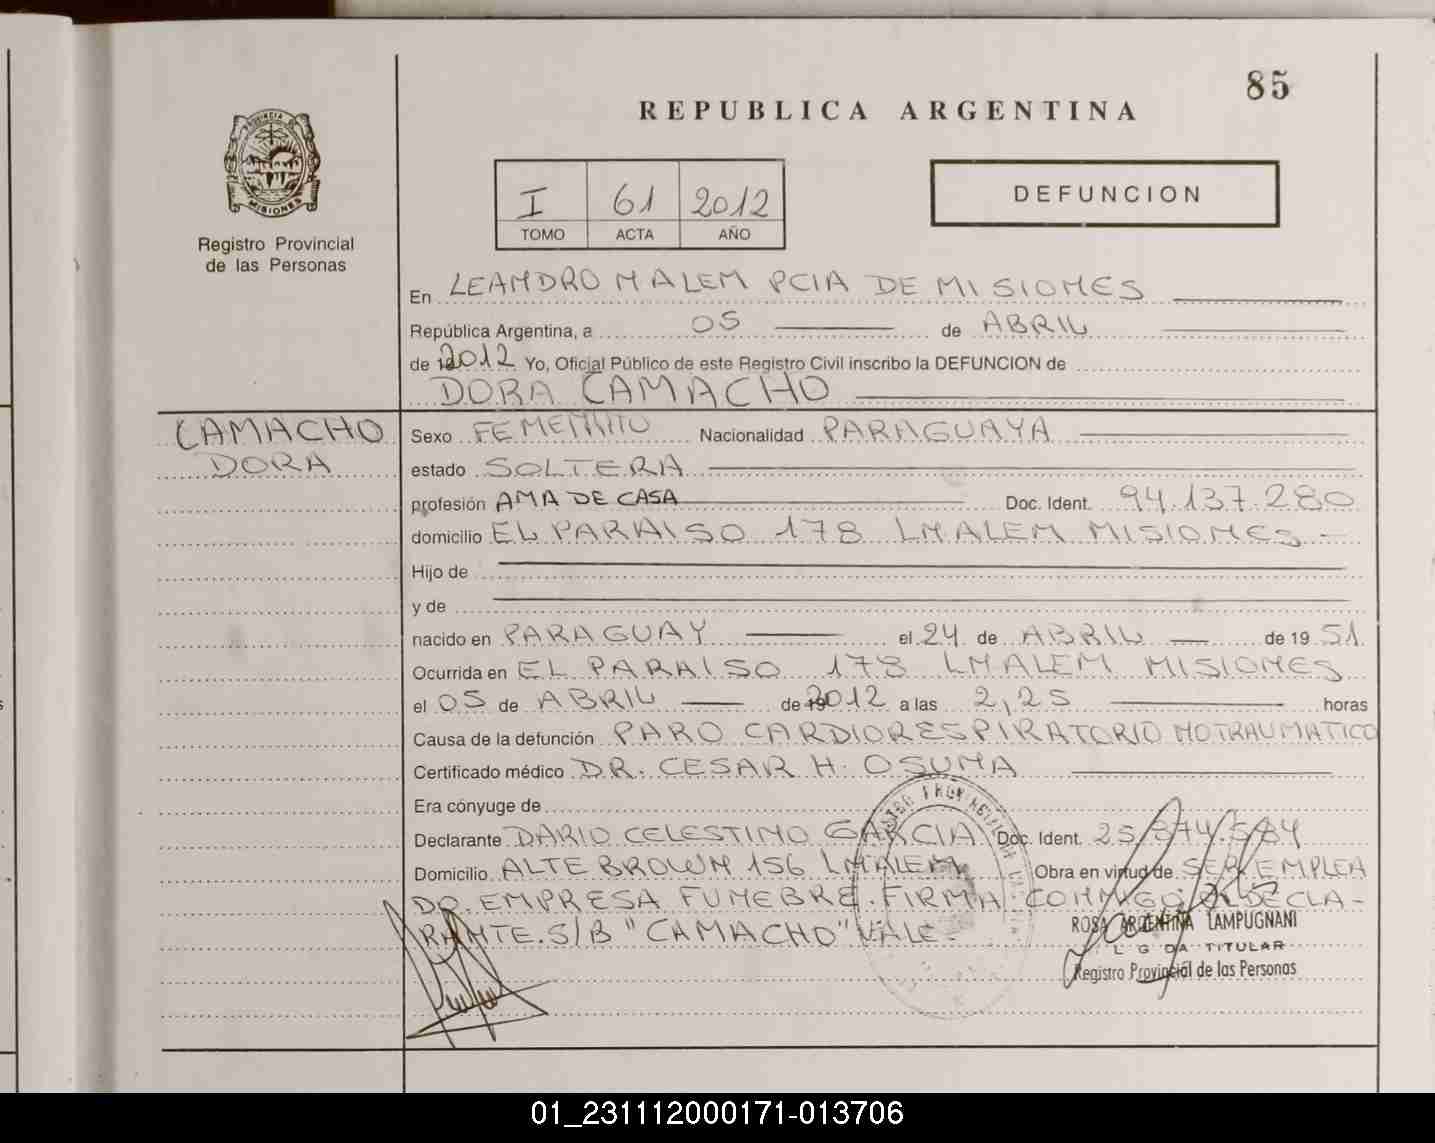 85
REPUBLICA ARGENTINA
PROVINCIA DE
MISIONES
Registro Provincial
de las Personas
I 61 2012
TOMO ACTA AÑO
DEFUNCION
En LEANDRO N ALEM PCIA DE MISIONES
República Argentina, a 05 de ABRIL
de 2012 Yo, Oficial Público de este Registro Civil inscribo la DEFUNCION de
DORA CAMACHO
CAMACHO
DORA
Sexo FEMENINO Nacionalidad PARAGUAYA
estado SOLTERA
profesión AMA DE CASA Doc. Ident. 94.137.280
domicilio EL PARAISO 178 LNALEM MISIONES
Hijo de
y de
nacido en PARAGUAY el 24 de ABRIL de 19 51
Ocurrida en EL PARAISO 178 LNALEM MISIONES
el 05 de ABRIL de 2012 a las 2,25 horas
Causa de la defunción PARO CARDIORESPIRATORIO NOTRAUMATICO
Certificado médico DR. CESAR H. OSUNA
Era cónyuge de
Declarante DARIO CELESTINO GARCIA Doc. Ident. 25.874.584
Domicilio ALTE BROWN 156 LNALEM Obra en virtud de SER EMPLEA
DO. EMPRESA FUNEBRE. FIRMA CONMIGO EL DECLA-
RANTE. S/B "CAMACHO" VALE.
ROSA ARGENTINA LAMPUGNANI
TITULAR
Registro Provincial de las Personas
01_231112000171-013706